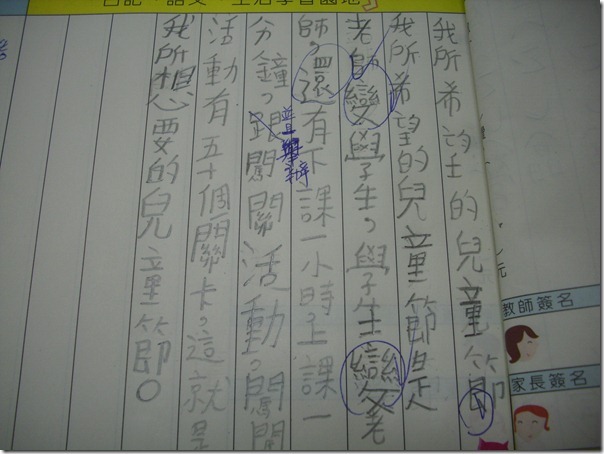 學習園地』
我所希望的兒童節
我所希望的兒童節是
老師變學生，學生變老
師。還有下課一小時上課一
分鐘，跟闖關活動。闖關
舉辦
活動有五十個關卡，這就是
我所想要的兒童節。
教師簽名
家長簽名